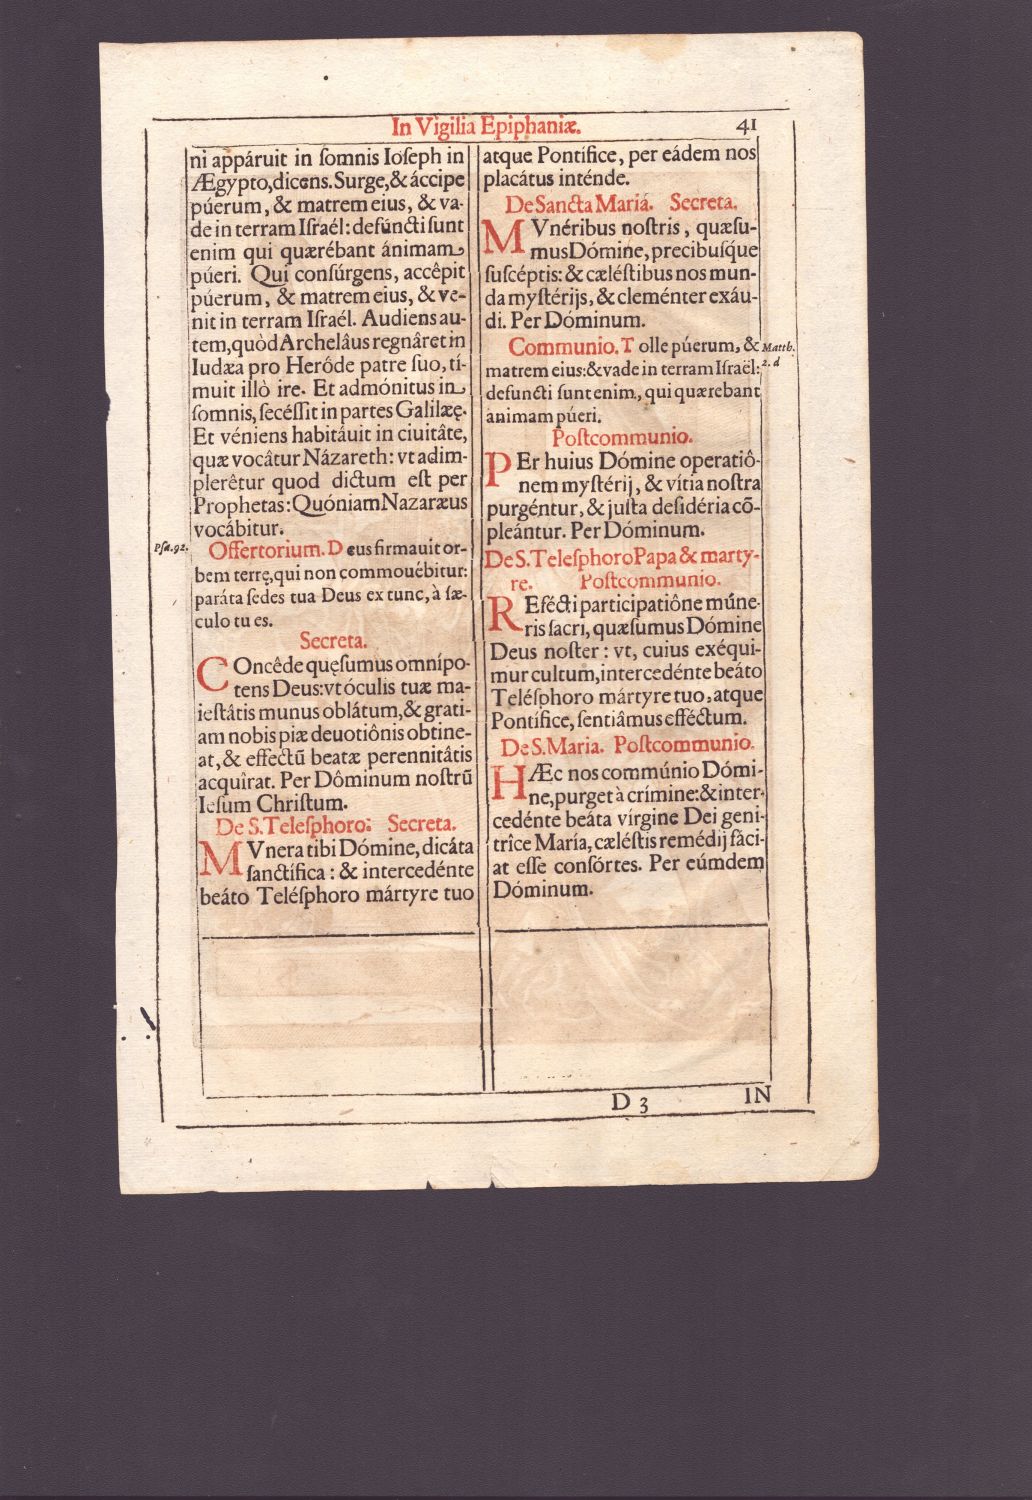 In Vigilia Epiphaniæ.
41
ni appáruit in ſomnis Ioſeph in
Ægypto,dicens. Surge,& áccipe
púerum, & matrem eius, & va-
de in terram Iſraél: defúncti ſunt
enim qui quærébant ánimam
púeri. Qui conſúrgens, accêpit
púerum, & matrem eius, & ve-
nit in terram Iſraél. Audiens au-
tem,quòd Archelâus regnâret in
Iudæa pro Heróde patre ſuo, tí-
muit illò ire. Et admónitus in
ſomnis, ſecéſſit in partes Galilæę.
Et véniens habitáuit in ciuitâte,
quæ vocâtur Názareth: vt adim-
plerêtur quod dictum eſt per
Prophetas: Quóniam Nazaræus
vocábitur.
Pſa.92.
Offertorium. D eus firmauit or-
bem terrę,qui non commouébitur:
paráta ſedes tua Deus ex tunc, à ſæ-
culo tu es.
Secreta.
COncêde quęſumus omnípo-
tens Deus:vt óculis tuæ ma-
ieſtâtis munus oblátum,& grati-
am nobis piæ deuotiônis obtine-
at, & effectũ beatæ perennitâtis
acquîrat. Per Dôminum noſtrũ
Ieſum Chriſtum.
De S. Teleſphoro: Secreta.
MVnera tibi Dómine, dicáta
ſanctífica : & intercedénte
beáto Teléſphoro mártyre tuo
atque Pontífice, per eádem nos
placátus inténde.
De Sancta Mariá. Secreta.
MVnéribus noſtris, quæſu-
mus Dómine, precibuſq́ue
ſuſcéptis: & cæléſtibus nos mun-
da myſtérijs, & cleménter exáu-
di. Per Dóminum.
Communio. T olle púerum, &
Matth.
2. d
matrem eius:& vade in terram Iſraël:
defuncti ſunt enim, qui quærebant
ánimam púeri.
Poſtcommunio.
PEr huius Dómine operatiô-
nem myſtérij, & vítia noſtra
purgéntur, & juſta deſidéria cõ-
pleántur. Per Dóminum.
De S. Teleſphoro Papa & marty-
re. Poſtcommunio.
REfécti participatiône múne-
ris ſacri, quæſumus Dómine
Deus noſter : vt, cuius exéqui-
mur cultum, intercedénte beáto
Teléſphoro mártyre tuo, atque
Pontífice, ſentiâmus efféctum.
De S. Maria. Poſtcommunio.
HÆc nos commúnio Dómi-
ne, purget à crímine: & inter-
cedénte beáta vírgine Dei geni-
trîce María, cæléſtis remédij fáci-
at eſſe conſórtes. Per eúmdem
Dóminum.
D 3
IN